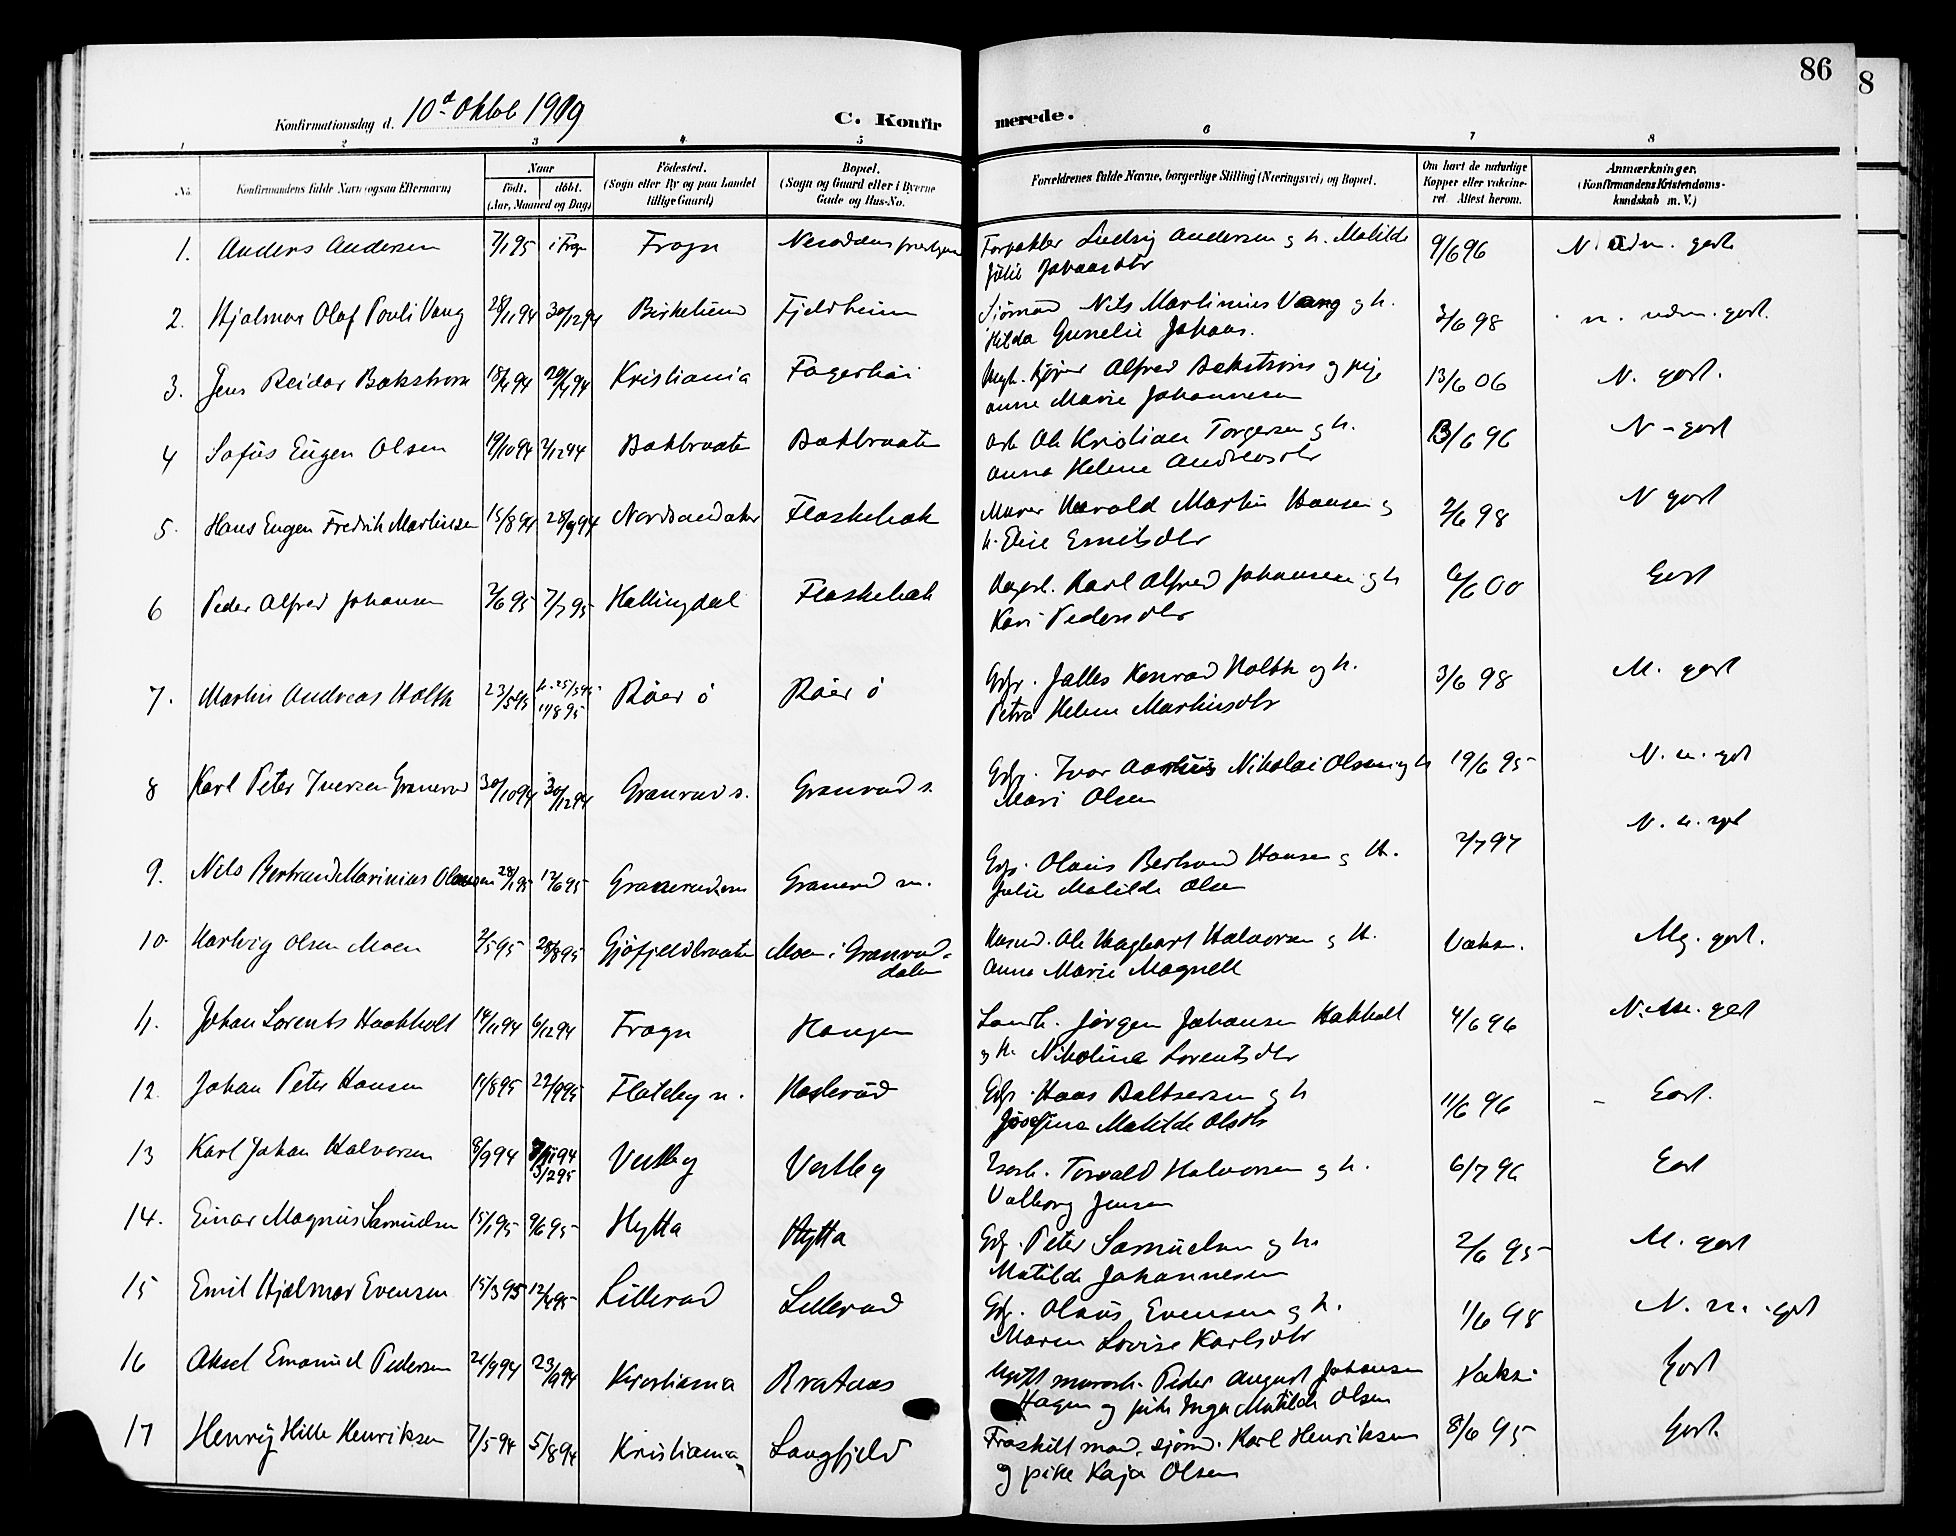 86
8
Konfirmationsdag d. 10d Oktbr 1909
C. Konfirmerede.
1 2 3 4 5 6 7 8
No. Konfirmandens fulde Navn (ogsaa Efternavn) Naar født. døbt. (Aar, Maaned og Dag) Fødested. (Sogn eller By og paa Landet tillige Gaard) Bopæl. (Sogn og Gaard eller i Byerne Gade og Hus-No. Forældrenes fulde Navne, borgerlige Stilling (Næringsvei) og Bopæl. Om havt de naturlige Kopper eller vaksineret. Attest herom. Anmærkninger. (Konfirmandens Kristendomskundskab m. V.)
1. Anders Andersen 7/1 95 i Frogn Frogn Nesoddens Ludvig Andersen g h. Matilde 9/6 96
Julie Johansdtr
2. Hjalmar Olaf Pouli Vang 28/11 94 30/12 94 Birkelund Fjeldheim Sjømand Nils Martinius Vang og h. 3/6 98 n. udm. godt.
Hilda Gunelie Johans.
3. Jens Reidar Bækstrøm 18/4 94 29/4 94 Kristiania Fagerhøi Alfred Bekstrøm og pige 13/6 06 N. godt.
Anne Marie Johannesen
4 Sofus Eugen Olsen 19/10 94 2/12 94 Bakbraaten Bakbraaten arb. Ole Kristian Torgersen g h. 13/6 96 N - godt
Anna Helene Andreasdtr
5. Hans Eugen Fredrik Martinsen 15/8 94 28/9 94 Flaskebæk Murer Harald Martin Hansen g 2/6 98 N godt
h. Elise Emilsdtr
6 Peder Alfred Johansen 3/6 95 7/7 95 Hallingdal Flaskebæk Karl Alfred Johansen g h 6/6 00 Godt
Kari Pedersdtr
7. Martin Andreas Holth 23/5 95 h. 25/5 95 11/8 95 Råer ö Råer ö Gdr. Jalles Konrad Holth og h. 3/6 98 M. godt
Petra Helene Martinsdtr
8 Karl Peter Iversen Granerud 30/10 94 30/12 94 Granrud s. Granrud s. Ivar Nikolai Olsen og h 19/6 95 N. n. godt
Mari Olsen
9. Nils Bertrand Marinius Olaussen 28/1 95 12/6 95 Granerud m. Olaus Bertrand Hansen g h. 2/7 97
Julie Matilde Olsen
10. Hartvig Olsen Moen 2/5 95 25/8 95 Gjøfjeldbraaten Moen i Granruddalen Husmd. Ole Hagbart Halvorsen g h. Vaksn. Mg. godt.
Anna Marie Magnell
11. Johan Lorents Haakholt 14/11 94 6/12 94 Frogn Haugen Jørgen Johansen Hakholt 4/6 96
g h. Nikoline Lorentsdtr
12. Johan Peter Hansen 11/8 95 22/9 95 Flateby n. Haslerud Hans Baltsersen g h 11/6 96 Godt.
Josefine Matilde Olsdtr
13 Karl Johan Halvorsen 8/9 94 3/2 95 Vestby Vestby Torvald Halvorsen og h. 6/7 96 Godt
Valborg Jensen
14. Einar Magnus Samuelsen 15/1 95 9/6 95 Hytta Hytta Peter Samuelsen g h. 2/6 95 M. godt
Matilde Johannesen
15 Emil Hjalmar Evensen 15/3 95 12/4 95 Lillerud Lillerud Olaus Evensen g h. 1/6 98 N. m. godt
Maren Lovise Karlsdtr
16 Aksel Emanuel Pedersen 21/9 94 23/9 94 Kristiania Brataas Ugift Peder August Johansen Vaks. Godt
Hagen og pike Inga Matilde Olsen
17 Henry Hille Henriksen 7/5 94 5/8 94 Kristiania Langfjeld Fraskilt mand, sjømd. Karl Henriksen 8/6 95 Godt.
og pike Kaja Olsen